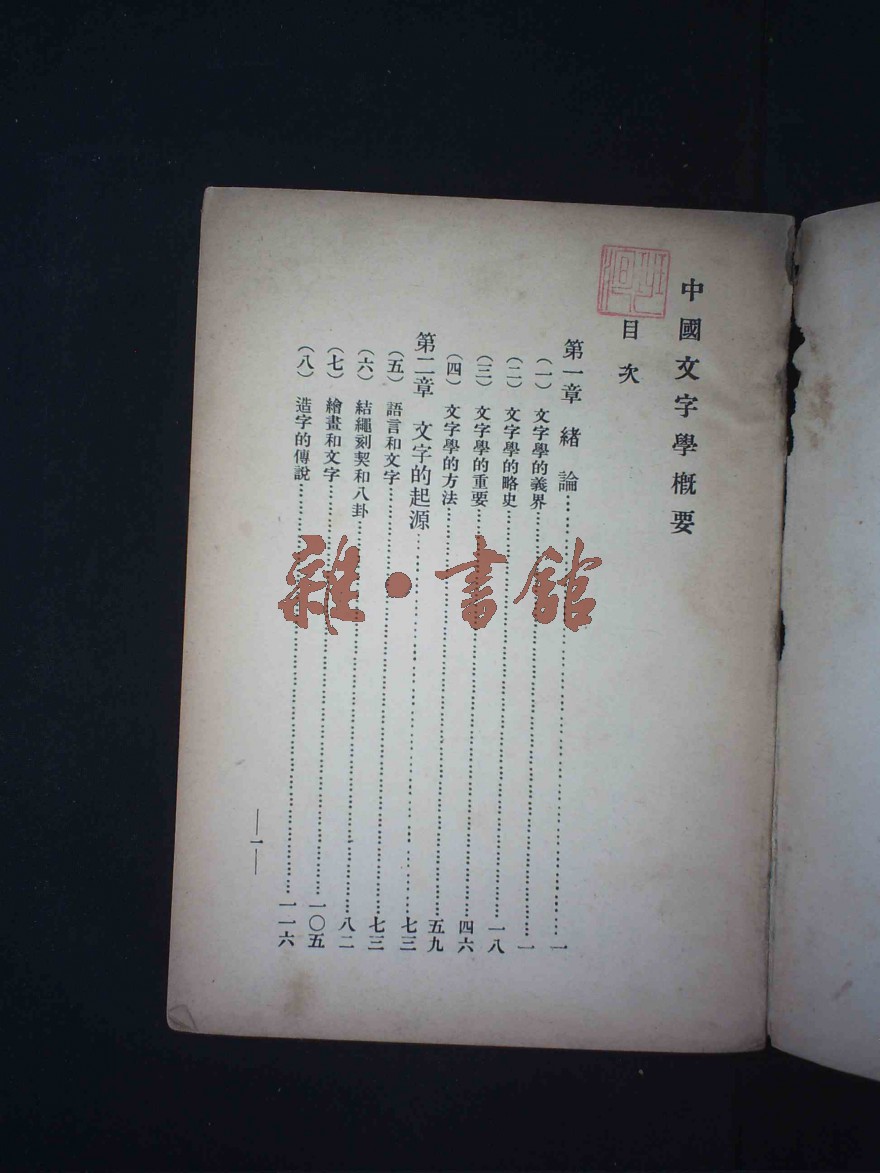 中國文字學槪要
目次
第一章 緒論……一
(一) 文字學的義界……一
(二) 文字學的略史……一八
(三) 文字學的重要……四六
(四) 文字學的方法……五九
第二章 文字的起源……七三
(五) 語言和文字……七三
(六) 結繩刻契和八卦……八二
(七) 繪畫和文字……一〇五
(八) 造字的傳說……一一六
—一—
雜·書館